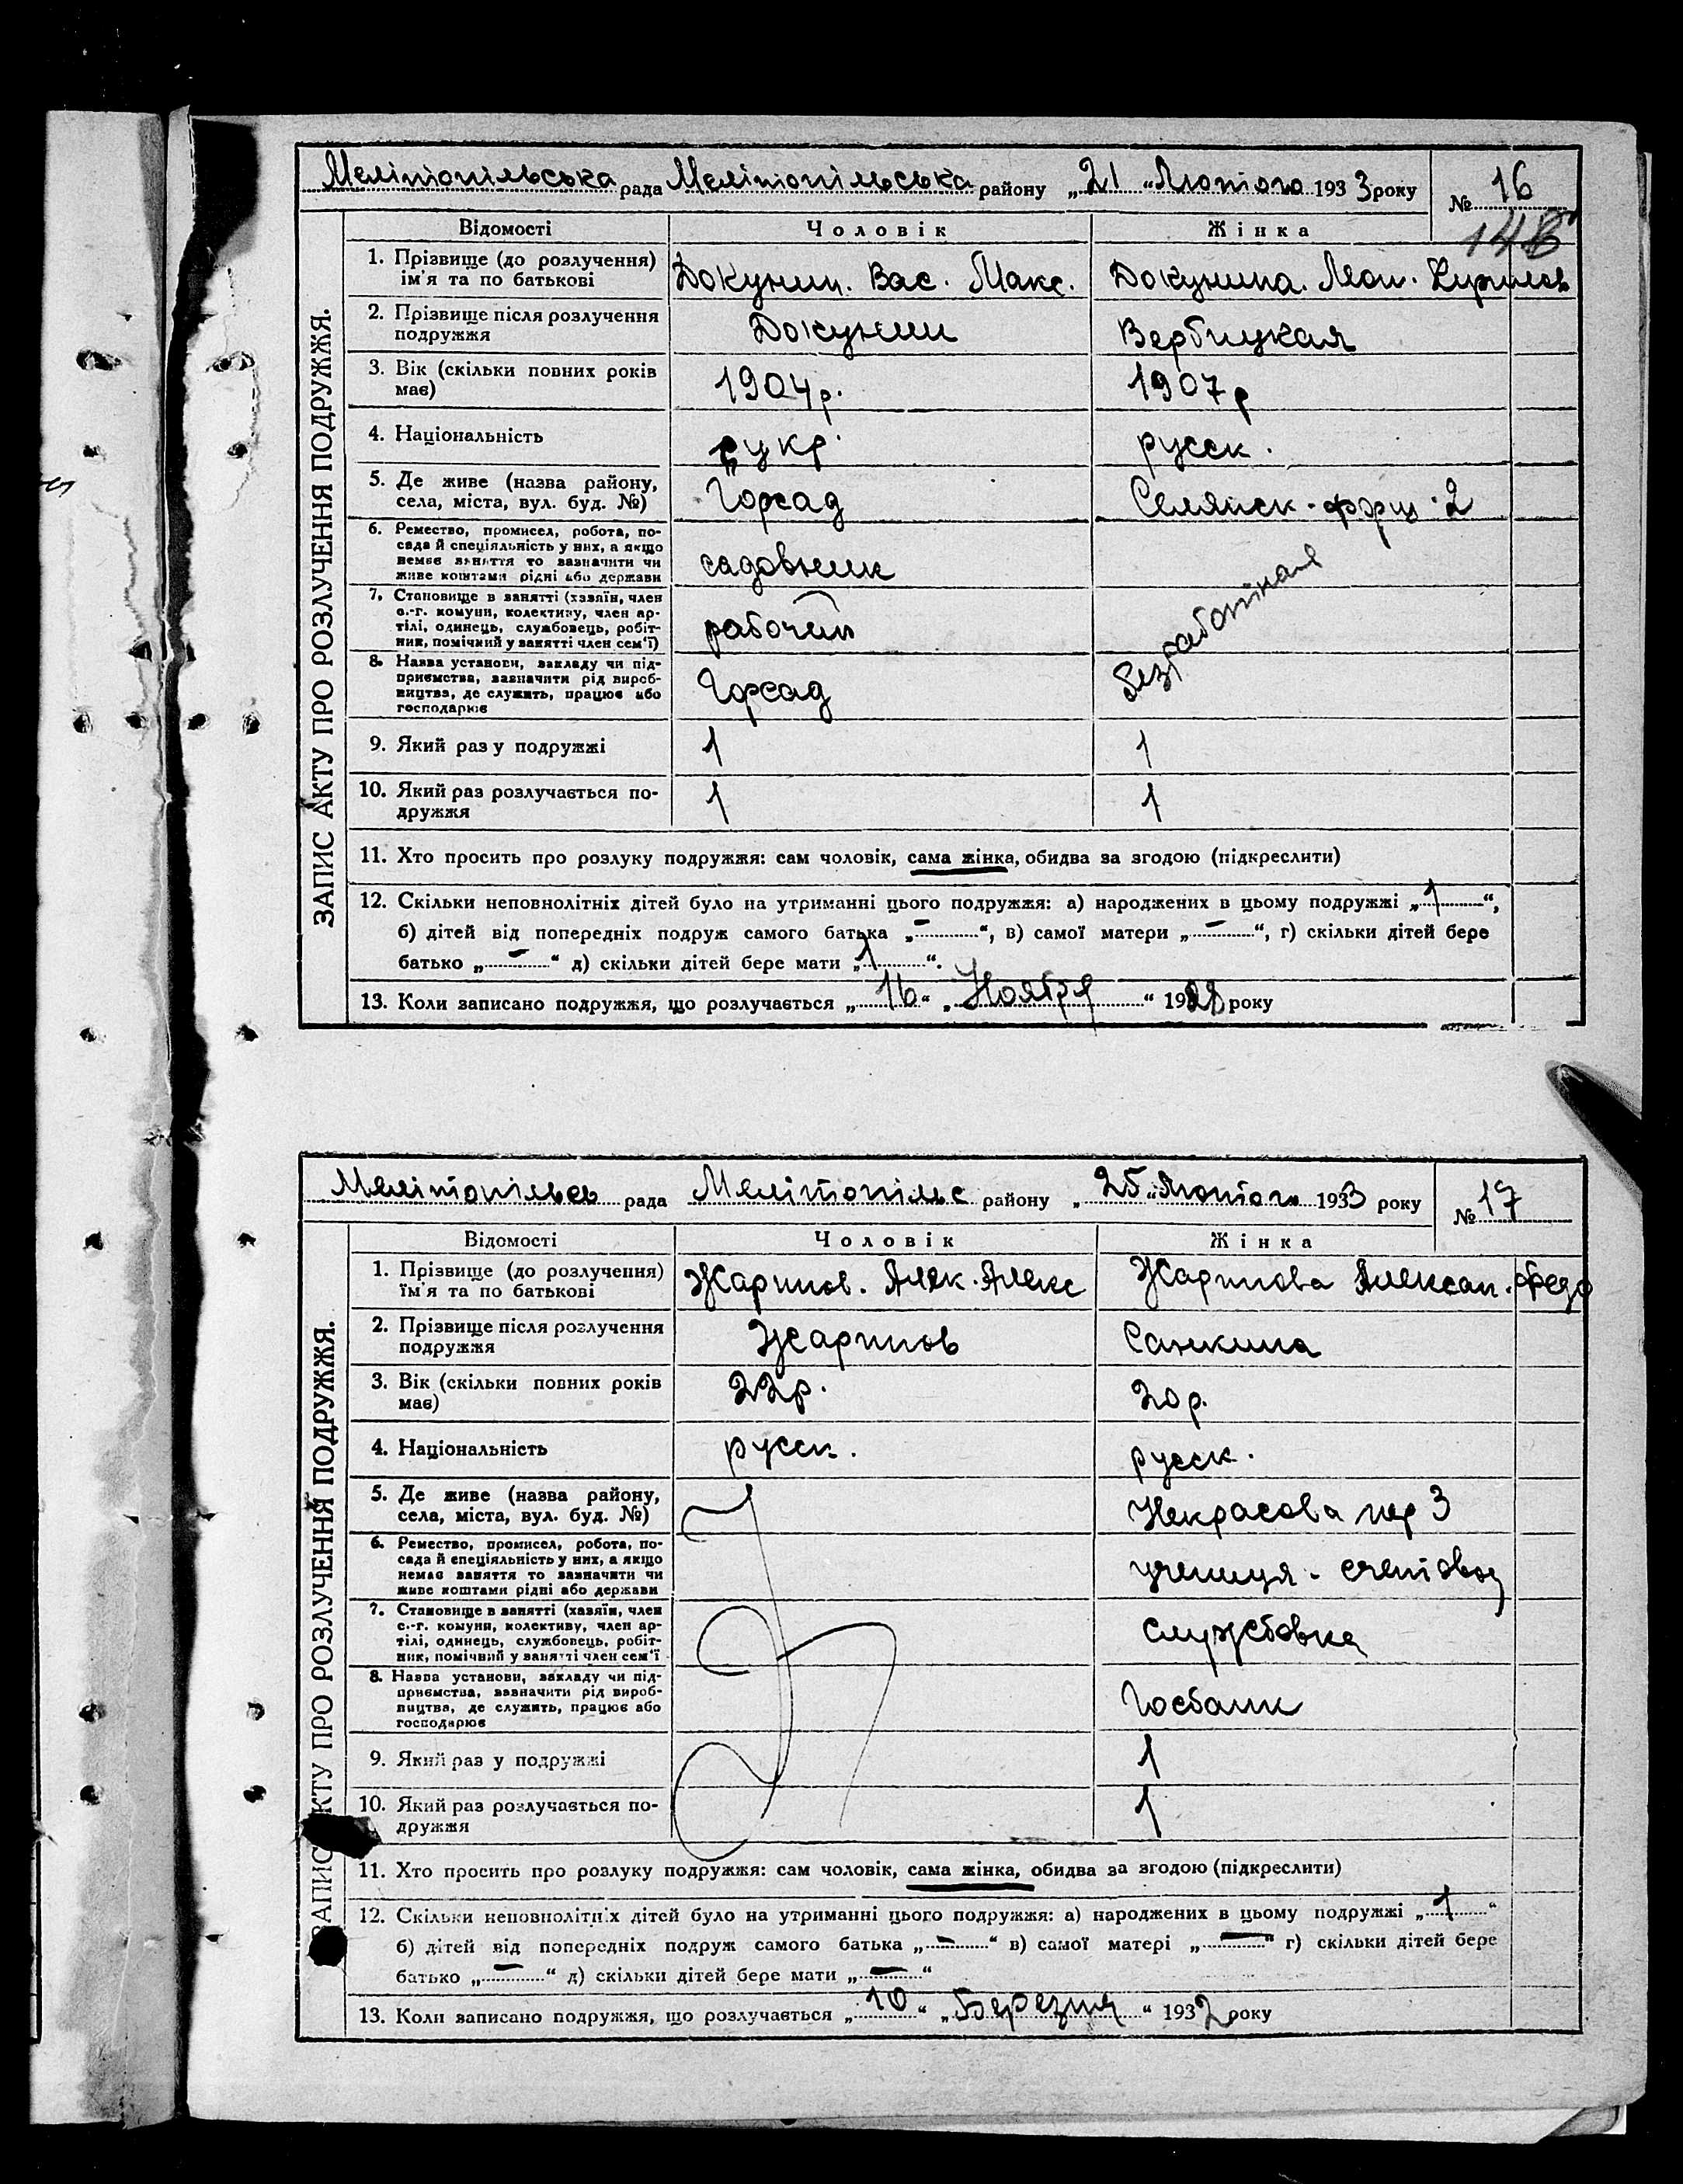 Мелітопільська рада Мелітопільська району „21 “Лютого 1933 року № 16
148
Відомості Чоловік Жінка
1. Прізвище (до розлучення) ім'я та по батькові Докунин. Вас. Макс. Докунина. Леон. Кирилов
2. Прізвище після розлучення подружжя Докунин Вербицкая
3. Вік (скільки повних років має) 1904 р. 1907 р
4. Національність укр. русск.
5. Де живе (назва району, села, міста, вул. буд. №) Горсад Селянск.
6. Ремество, промисел, робота, посада й спеціяльність у них, а якщо немає заняття то зазначити чи живе коштами рідні або держави садовник
7. Становище в занятті (хазяїн, член с.-г. комуни, колективу, член артілі, одинець, службовець, робітник, помічний у занятті член сем'ї) рабочий Безработная
8. Назва установи, закладу чи підприємства, зазначити рід виробництва, де служить, працює або господарює Горсад
9. Який раз у подружжі 1 1
10. Який раз розлучається подружжя 1 1
11. Хто просить про розлуку подружжя: сам чоловік, сама жінка, обидва за згодою (підкреслити)
12. Скільки неповнолітніх дітей було на утриманні цього подружжя: а) народжених в цьому подружжі „1“,
б) дітей від попередніх подруж самого батька „-“, в) самої матери „-“, г) скільки дітей бере
батько „-“ д) скільки дітей бере мати „1“.
13. Коли записано подружжя, що розлучається „16“ „Ноября“ 1928 року
ЗАПИС АКТУ ПРО РОЗЛУЧЕННЯ ПОДРУЖЖЯ.
Мелітопільсь рада Мелітопільс району „25“ Лютого 1933 року № 17
Відомості Чоловік Жінка
1. Прізвище (до розлучення) ім'я та по батькові Жаринов. Алек. Алекс Жаринова Алексан. Федо
2. Прізвище після розлучення подружжя Жаринов Санкина
3. Вік (скільки повних років має) 22р. 20р.
4. Національність русск. русск.
5. Де живе (назва району, села, міста, вул. буд. №) Некрасова пер 3
6. Ремество, промисел, робота, посада й спеціяльність у них, а якщо немає заняття то зазначити чи живе коштами рідні або держави учениця - счетовод
7. Становище в занятті (хазяїн, член с.-г. комуни, колективу, член артілі, одинець, службовець, робітник, помічний у занятті член сем'ї службовка
8. Назва установи, закладу чи підприємства, зазначити рід виробництва, де служить, працює або господарює Госбанк
9. Який раз у подружжі 1
10. Який раз розлучається подружжя 1
11. Хто просить про розлуку подружжя: сам чоловік, сама жінка, обидва за згодою (підкреслити)
12. Скільки неповнолітніх дітей було на утриманні цього подружжя: а) народжених в цьому подружжі „1“
б) дітей від попередніх подруж самого батька „-“ в) самої матері „-“ г) скільки дітей бере
батько „-“ д) скільки дітей бере мати „-“
13. Коли записано подружжя, що розлучається „10“ „Березня“ 1932 року
ЗАПИС АКТУ ПРО РОЗЛУЧЕННЯ ПОДРУЖЖЯ.